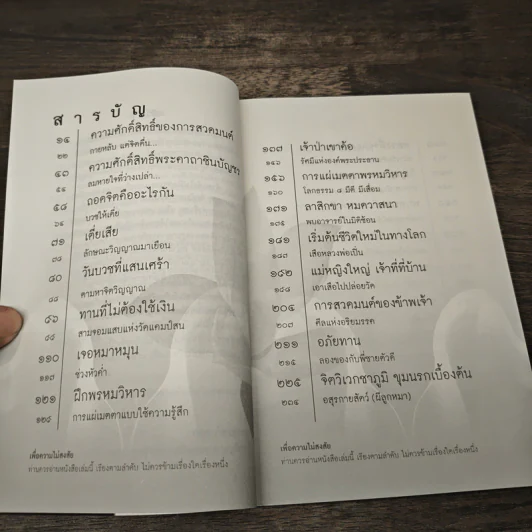 สารบัญ
๑๔ ความศักดิ์สิทธิ์ของการสวดมนต์
๒๒ กายหลับ แต่จิตตื่น...
๔๓ ความศักดิ์สิทธิ์พระคาถาชินบัญชร
๕๔ ลมหายใจที่ว่างเปล่า...
๕๘ ถอดจิตคืออะไรกัน
๖๔ บวชให้เตี่ย
๗๑ เตี่ยเสีย
๗๘ ลักษณะวิญญาณมาเยือน
๘๐ วันบวชที่แสนเศร้า
๘๘ ตามหาจิตวิญญาณ
๙๖ ทานที่ไม่ต้องใช้เงิน
๙๙ สามจอมแสบแห่งวัดแคมป์สน
๑๑๐ เจอหมาหมุน
๑๑๗ ช่วงหัวค่ำ
๑๒๑ ฝึกพรหมวิหาร
๑๒๘ การแผ่เมตตาแบบใช้ความรู้สึก
เพื่อความไม่สงสัย
ท่านควรอ่านหนังสือเล่มนี้ เรียงตามลำดับ ไม่ควรข้ามเรื่องใดเรื่องหนึ่ง
๑๓๗ เจ้าป่าเขาค้อ
๑๔๖ รัศมีแห่งองค์พระประธาน
๑๕๖ การแผ่เมตตาพรหมวิหาร
๑๖๐ โลกธรรม ๘ มีดี มีเสื่อม
๑๗๑ ลาสิกขา หมดวาสนา
๑๗๕ พบอาจารย์ในมิติซ้อน
๑๘๑ เริ่มต้นชีวิตใหม่ในทางโลก
๑๘๗ เสือหลวงพ่อเปิ่น
๑๙๒ แม่หญิงใหญ่ เจ้าที่ที่บ้าน
๑๙๘ เอาเสือไปปล่อยวัด
๒๐๔ การสวดมนต์ของข้าพเจ้า
๒๐๗ ศีลแห่งอริยมรรค
๒๑๑ อภัยทาน
๒๑๕ ลองของกับพี่ชายตัวดี
๒๒๕ จิตวิเวกชาภูมิ ขุมนรกเบื้องต้น
๒๓๔ อสุรกายสัตว์ (ผีลูกหมา)
เพื่อความไม่สงสัย
ท่านควรอ่านหนังสือเล่มนี้ เรียงตามลำดับ ไม่ควรข้ามเรื่องใดเรื่องหนึ่ง